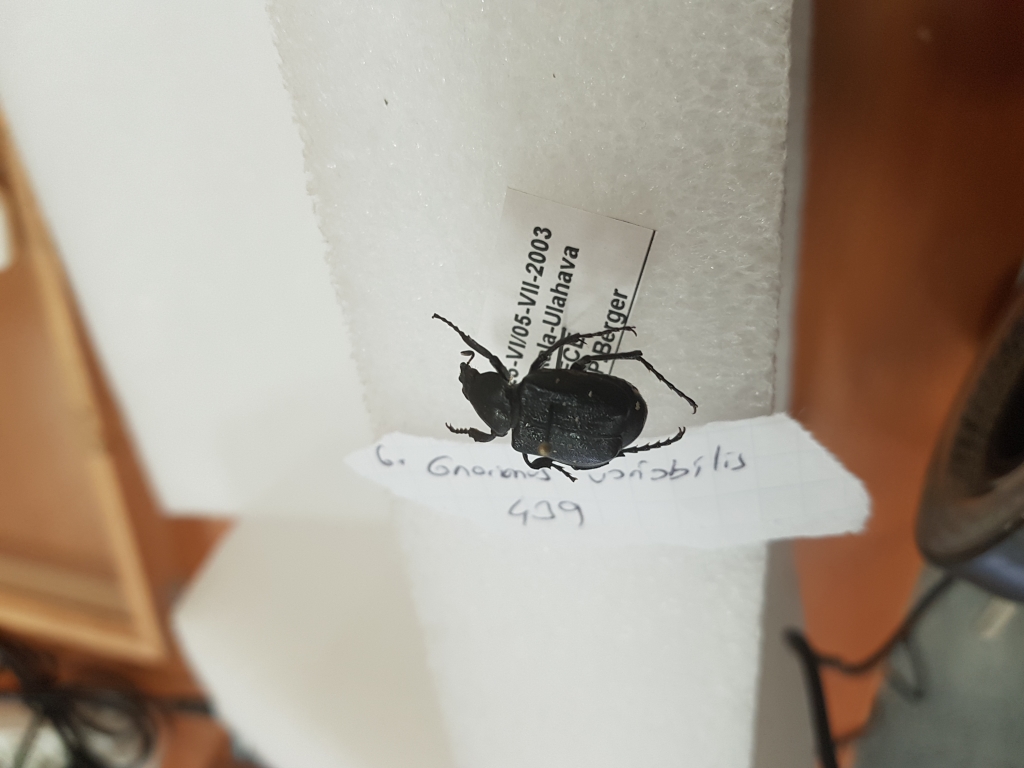 -VI/05-VII-2003
la-Ulahava
P Berger
6. Gnorimus variabilis
439